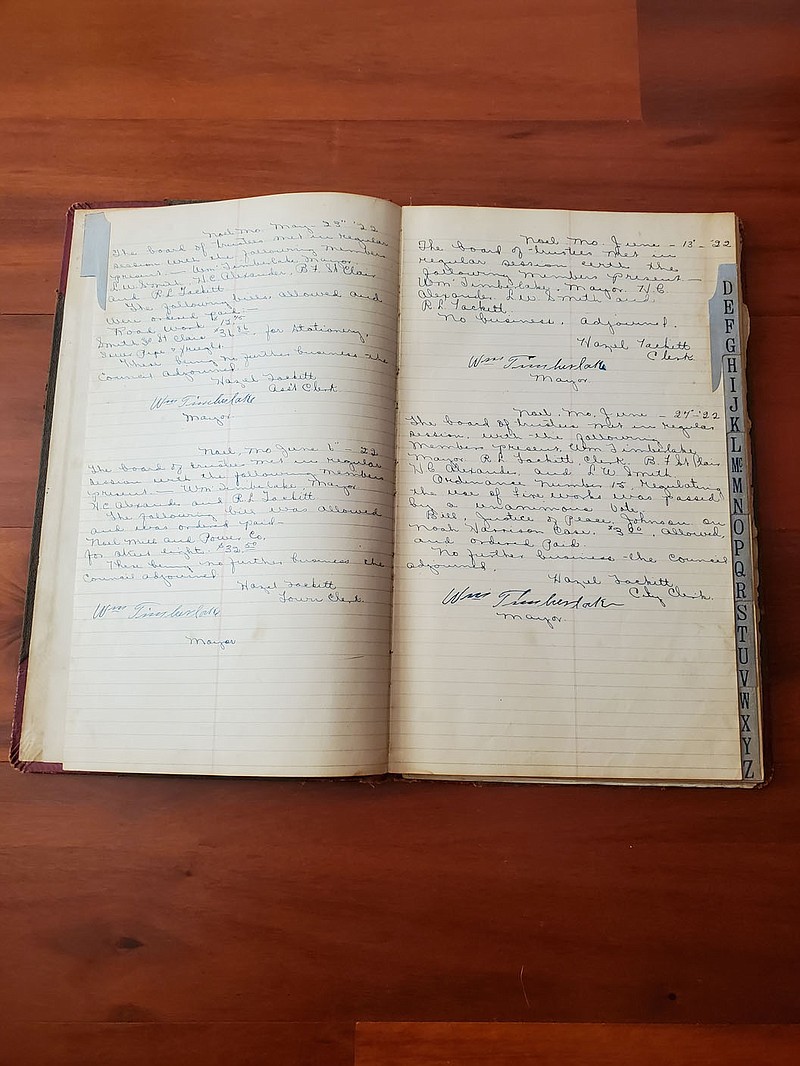 Noel Mo. May 23" '22
The board of trustees met in regular
session with the following members
present – Wm Timberlake, Mayor,
L.W. Smith, H.C. Alexander, B.F. St Clair
and R.L. Tackett.
The following bills, allowed and
were ordered paid –
Road Work $13.50
Smith & St Clair for Stationery,
Sewer Pipe & freight.
There being no further business the
Council adjourned.
Hazel Tackett
Ass't Clerk.
Wm Timberlake
Mayor
Noel, Mo June 6" 22
The board of trustees met in regular
session with the following members
present – Wm Timberlake, Mayor
H.C. Alexander and R.L. Tackett.
The following bill was allowed
and was ordered paid –
Noel Merc and Power Co,
for street light. $32.50
There being no further business the
Council adjourned
Hazel Tackett
Town Clerk.
Wm Timberlake
Mayor
Noel, Mo. June – 13 – '22
The board of trustees met in
regular session with the
following members present –
Wm Timberlake, Mayor, H.C.
Alexander, L.W. Smith and
R.L. Tackett.
No business, adjourned.
Hazel Tackett
Clerk
Wm Timberlake
Mayor
Noel, Mo, June – 27 – '22
The board of trustees met in regular
session, with the following
members present, Wm Timberlake,
Mayor, R.L. Tackett, Clerk, B.F. St Clair
H.C. Alexander, and L.W. Smith.
Ordinance Number 15, regulating
the use of fire works was passed
by a unanimous vote.
Bill, Justice of Peace, Johnson on
Noah Harrison Case. $3.00, Allowed,
and ordered Paid.
No further business – the council
adjourned.
Hazel Tackett,
City Clerk.
Wm Timberlake
Mayor
D
E
F
G
H
I
J
K
L
Mc
M
N
O
P
Q
R
S
T
U
V
W
X
Y
Z